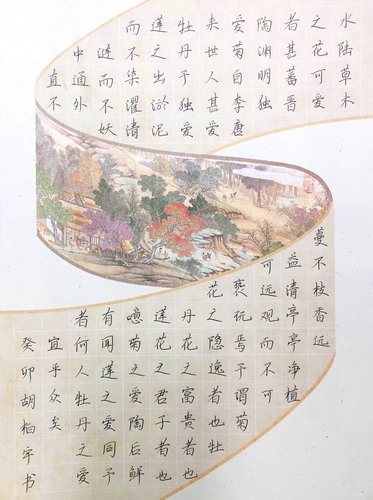 水陆草木
之花可爱
者甚蕃晋
陶渊明独
爱菊自李唐
来世人甚爱
牡丹予独爱
莲之出淤泥
而不染濯清
涟而不妖
中通外
直不
蔓不枝香远
益清亭亭净植
可远观而不可
亵玩焉予谓菊
花之隐逸者也牡
丹花之富贵者也
莲花之君子者也
噫菊之爱陶后鲜
有闻莲之爱同予
者何人牡丹之爱
宜乎众矣
癸卯胡柏宇书